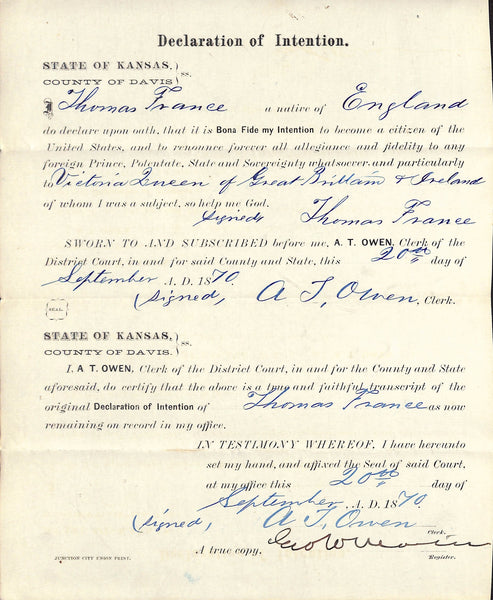 Declaration of Intention.
STATE OF KANSAS, } ss.
COUNTY OF DAVIS }
I Thomas France a native of England
do declare upon oath, that it is Bona Fide my Intention to become a citizen of the
United States, and to renounce forever all allegiance and fidelity to any
foreign Prince, Potentate, State and Sovereignty whatsoever, and particularly
to Victoria Queen of Great Brittain & Ireland
of whom I was a subject, so help me God.
Signed, Thomas France
SWORN TO AND SUBSCRIBED before me, A. T. OWEN, Clerk of the
District Court, in and for said County and State, this 20th day of
September A. D. 1870.
(Signed, A T, Owen, Clerk.
SEAL.
STATE OF KANSAS, } ss.
COUNTY OF DAVIS. }
I, A T. OWEN, Clerk of the District Court, in and for the County and State
aforesaid, do certify that the above is a true and faithful transcript of the
original Declaration of Intention of Thomas France as now
remaining on record in my office.
IN TESTIMONY WHEREOF, I have hereunto
set my hand, and affixed the Seal of said Court,
at my office this 20th day of
September A. D. 1870
(Signed, A T, Owen
Clerk.
A true copy. Geo W
Register.
JUNCTION CITY UNION PRINT.